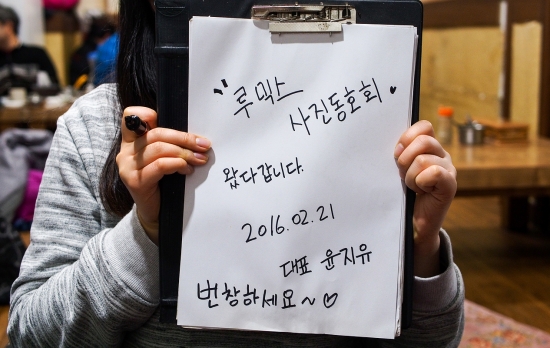 루믹스
사진동호회
왔다갑니다.
2016.02.21
대표 윤지유
번창하세요~♡